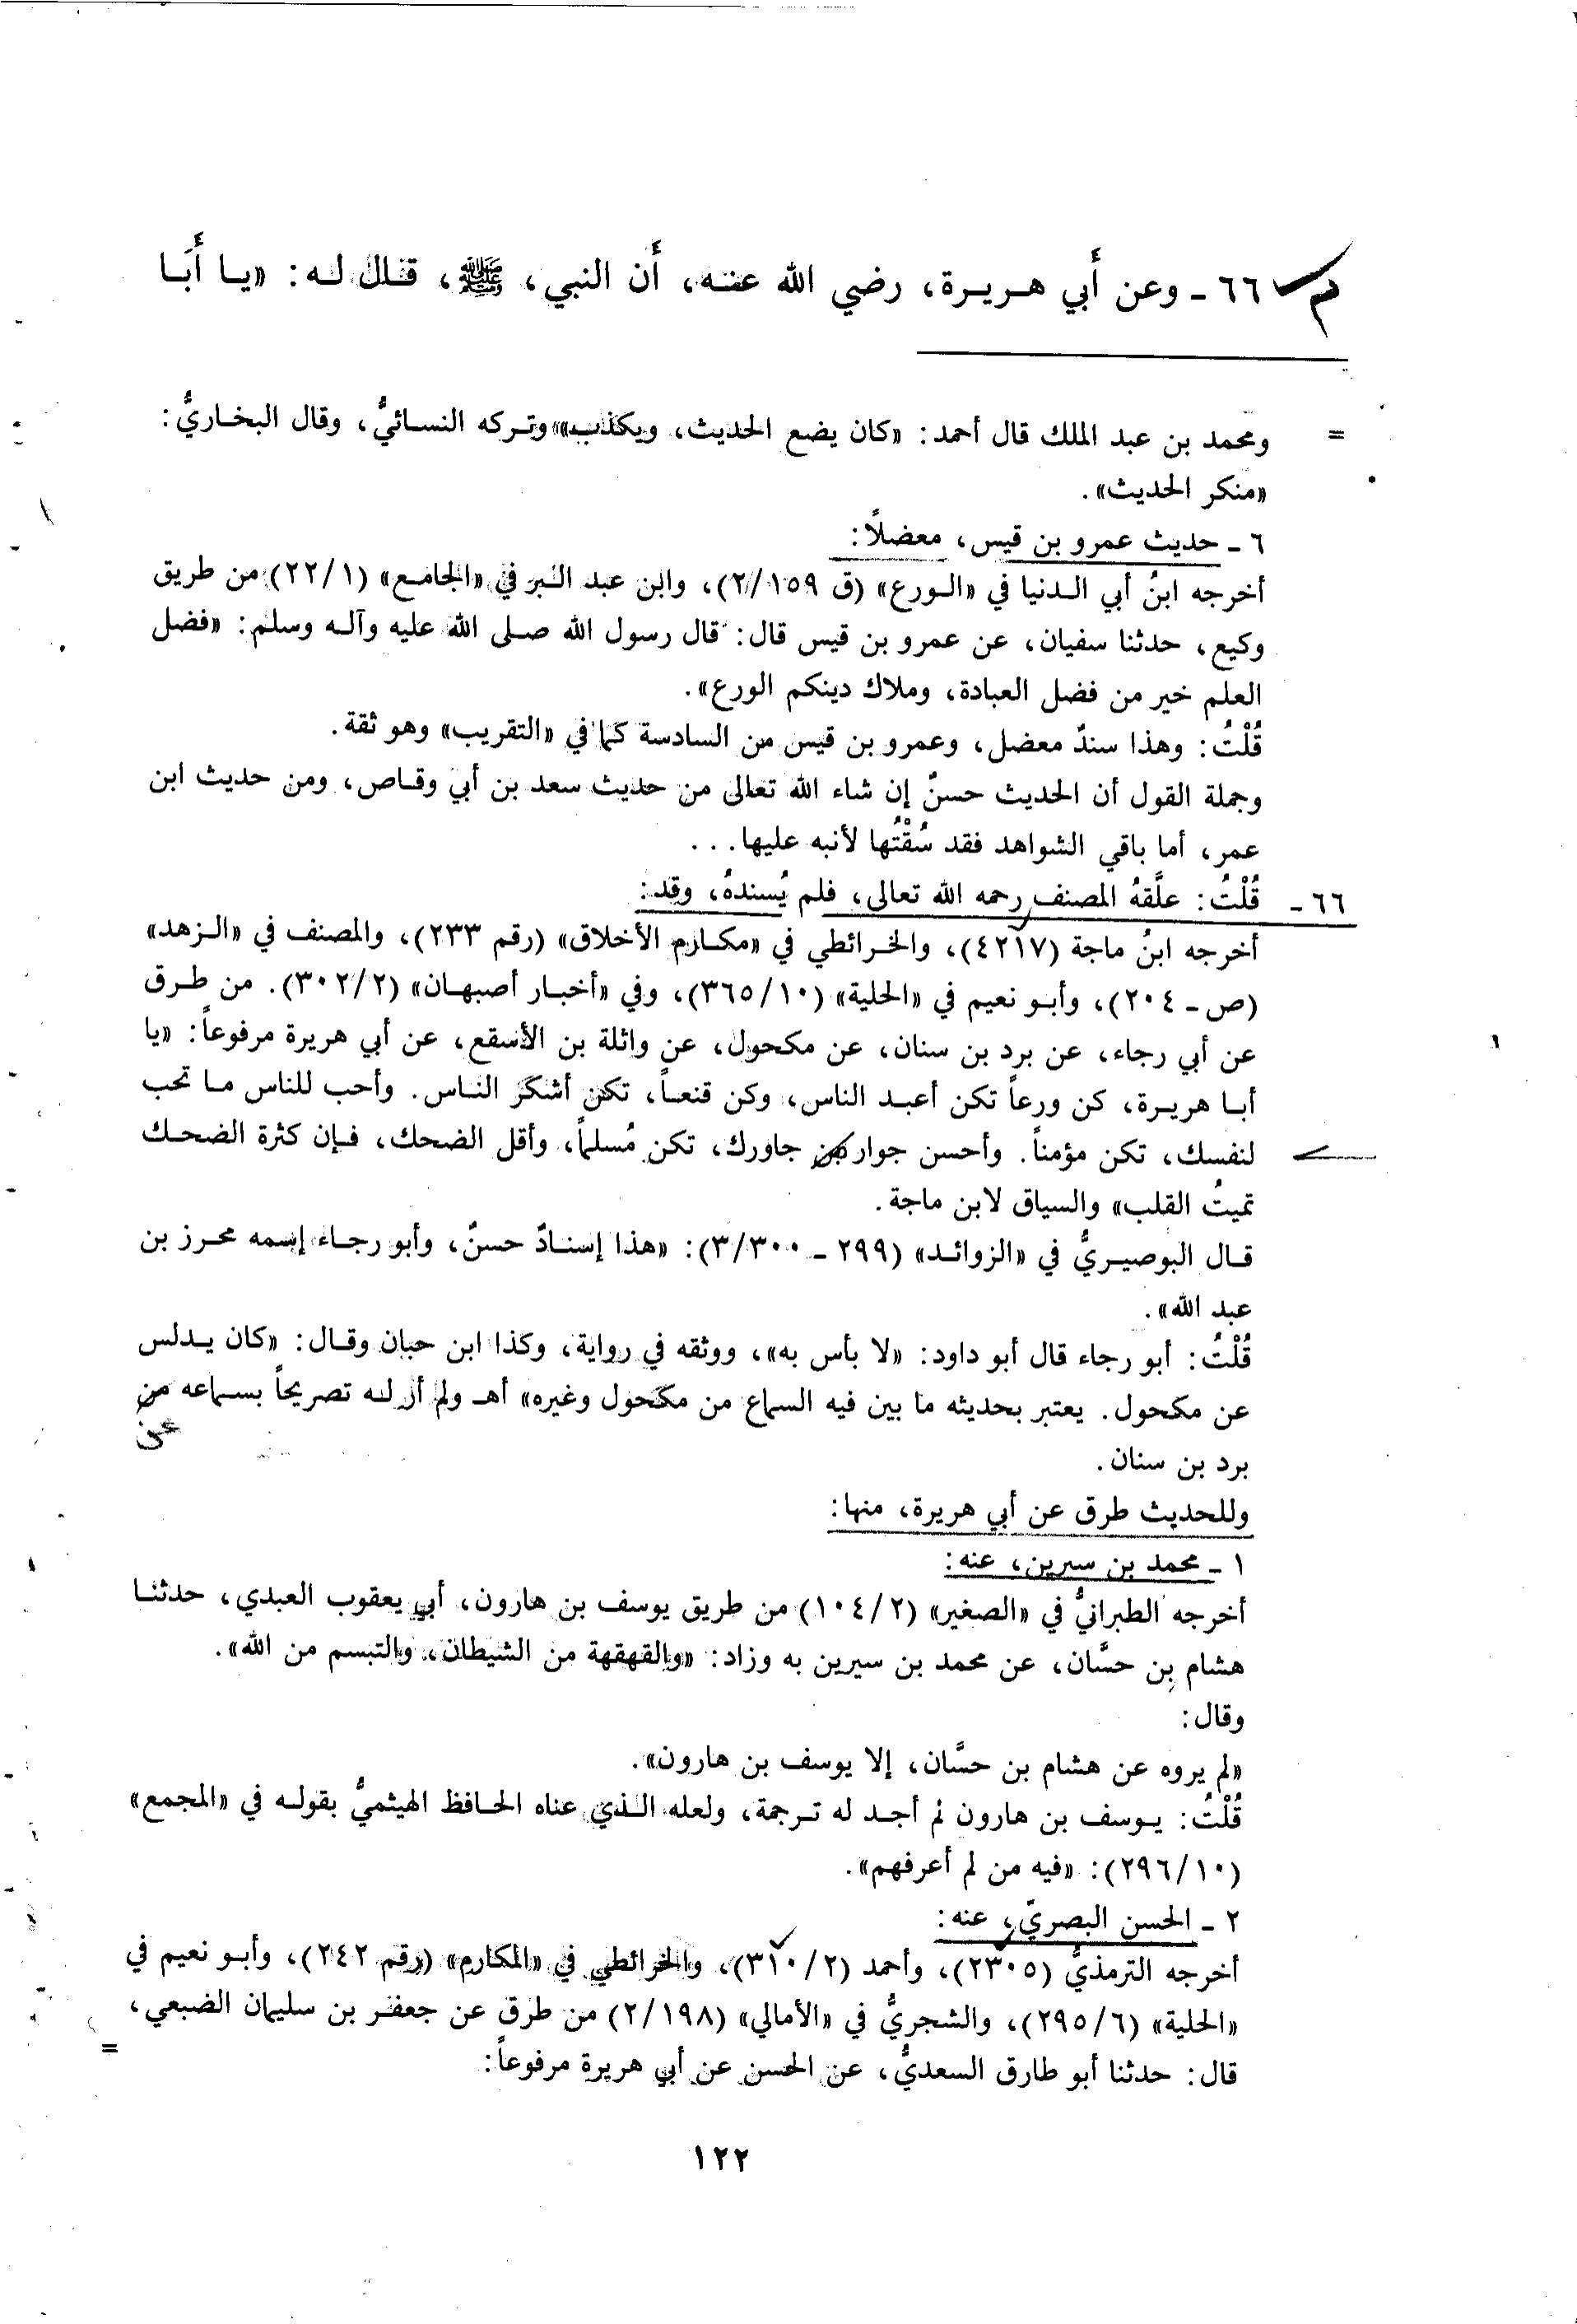 م ٦٦ - وعن أَبي هريرة، رضي الله عنه، أَن النبي، ﷺ، قال له: «يا أَبَا
= ومحمد بن عبد الملك قال أحمد: «كان يضع الحديث، ويكذب» وتركه النسائيُّ، وقال البخاريُّ:
«منكر الحديث».
٦ - حديث عمرو بن قيس، معضلاً:
أخرجه ابنُ أبي الدنيا في «الورع» (ق ٢/١٥٩)، وابن عبد البر في «الجامع» (٢٢/١) من طريق
وكيع، حدثنا سفيان، عن عمرو بن قيس قال: قال رسول الله صلى الله عليه وآله وسلم: «فضل
العلم خير من فضل العبادة، وملاك دينكم الورع».
قُلْتُ: وهذا سندٌ معضل، وعمرو بن قيس من السادسة كما في «التقريب» وهو ثقة.
وجملة القول أن الحديث حسنٌ إن شاء الله تعالى من حديث سعد بن أبي وقاص، ومن حديث ابن
عمر، أما باقي الشواهد فقد سُقْتُها لأنبه عليها...
٦٦ - قُلْتُ: علَّقهُ المصنف رحمه الله تعالى، فلم يُسندهُ، وقد:
أخرجه ابنُ ماجة (٤٢١٧)، والخرائطي في «مكارم الأخلاق» (رقم ٢٣٣)، والمصنف في «الزهد»
(ص - ٢٠٤)، وأبو نعيم في «الحلية» (٣٦٥/١٠)، وفي «أخبار أصبهان» (٣٠٢/٢). من طرق
عن أبي رجاء، عن برد بن سنان، عن مكحول، عن واثلة بن الأسقع، عن أبي هريرة مرفوعاً: «يا
أبا هريرة، كن ورعاً تكن أعبد الناس، وكن قنعاً، تكن أشكر الناس. وأحب للناس ما تحب
لنفسك، تكن مؤمناً. وأحسن جوار من جاورك، تكن مُسلماً، وأقل الضحك، فإن كثرة الضحك
تميتُ القلب» والسياق لابن ماجة.
قال البوصيريُّ في «الزوائد» (٢٩٩ - ٣/٣٠٠): «هذا إسنادٌ حسنٌ، وأبو رجاء إسمه محرز بن
عبد الله».
قُلْتُ: أبو رجاء قال أبو داود: «لا بأس به»، ووثقه في رواية، وكذا ابن حبان وقال: «كان يدلس
عن مكحول. يعتبر بحديثه ما بين فيه السماع من مكحول وغيره» أهـ ولم أر له تصريحاً بسماعه من
عن
برد بن سنان.
وللحديث طرق عن أبي هريرة، منها:
١ - محمد بن سيرين، عنه:
أخرجه الطبرانيُّ في «الصغير» (١٠٤/٢) من طريق يوسف بن هارون، أبي يعقوب العبدي، حدثنا
هشام بن حسَّان، عن محمد بن سيرين به وزاد: «والقهقهة من الشيطان، والتبسم من الله».
وقال:
«لم يروه عن هشام بن حسَّان، إلا يوسف بن هارون».
قُلْتُ: يوسف بن هارون لم أجد له ترجمة، ولعله الذي عناه الحافظ الهيثميُّ بقوله في «المجمع»
(٢٩٦/١٠): «فيه من لم أعرفهم».
٢ - الحسن البصريّ، عنه:
أخرجه الترمذيُّ (٢٣٠٥)، وأحمد (٣١٠/٢)، والخرائطي في «المكارم» (رقم ٢٤٢)، وأبو نعيم في
«الحلية» (٢٩٥/٦)، والشجريُّ في «الأمالي» (٢/١٩٨) من طرق عن جعفر بن سليمان الضبعي،
قال: حدثنا أبو طارق السعديُّ، عن الحسن عن أبي هريرة مرفوعاً: =
١٢٢